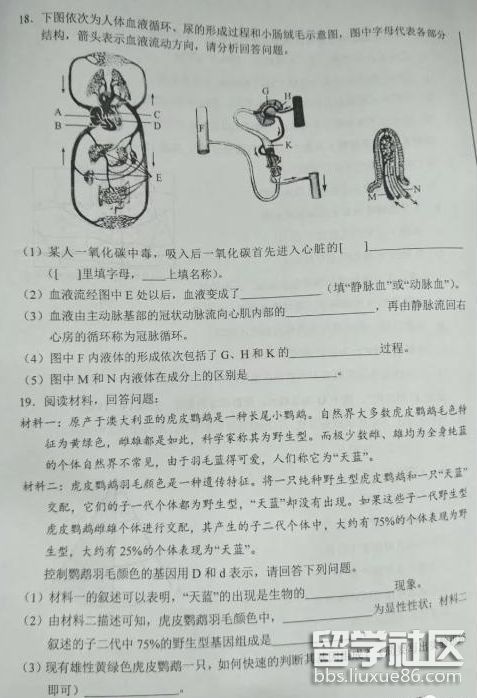 18. 下图依次为人体血液循环、尿的形成过程和小肠绒毛示意图,图中字母代表各部分
结构,箭头表示血液流动方向,请分析回答问题。
A
B
C
D
E
F
G
H
K
M
N
(1)某人一氧化碳中毒,吸入后一氧化碳首先进入心脏的[ ]________
([ ]里填字母,____上填名称)。
(2)血液流经图中 E 处以后,血液变成了________(填“静脉血”或“动脉血”)。
(3)血液由主动脉基部的冠状动脉流向心肌内部的________,再由静脉流回右
心房的循环称为冠脉循环。
(4)图中 F 内液体的形成依次包括了 G、H 和 K 的________过程。
(5)图中 M 和 N 内液体在成分上的区别是________。
19. 阅读材料,回答问题:
材料一:原产于澳大利亚的虎皮鹦鹉是一种长尾小鹦鹉。自然界大多数虎皮鹦鹉毛色特
征为黄绿色,雌雄都是如此,科学家称其为野生型。而极少数雌、雄均为全身纯蓝
的个体自然界不常见,由于羽毛蓝得可爱,人们称它为“天蓝”。
材料二:虎皮鹦鹉羽毛颜色是一种遗传特征。将一只纯种野生型虎皮鹦鹉和一只“天蓝”
交配,它们的子一代个体都为野生型,“天蓝”却没有出现。如果这些子一代野生型
虎皮鹦鹉雌雄个体进行交配,其产生的子二代个体中,大约有 75%的个体表现为野
生型,大约有 25%的个体表现为“天蓝”。
控制鹦鹉羽毛颜色的基因用 D 和 d 表示,请回答下列问题。
(1)材料一的叙述可以表明,“天蓝”的出现是生物的________现象。
(2)由材料二描述可知,虎皮鹦鹉羽毛颜色中,________为显性性状;材料二
叙述的子二代中 75%的野生型基因组成是________
(3)现有雄性黄绿色虎皮鹦鹉一只,如何快速的判断其
即可)________。
留学社区
bbs.liuxue86.com